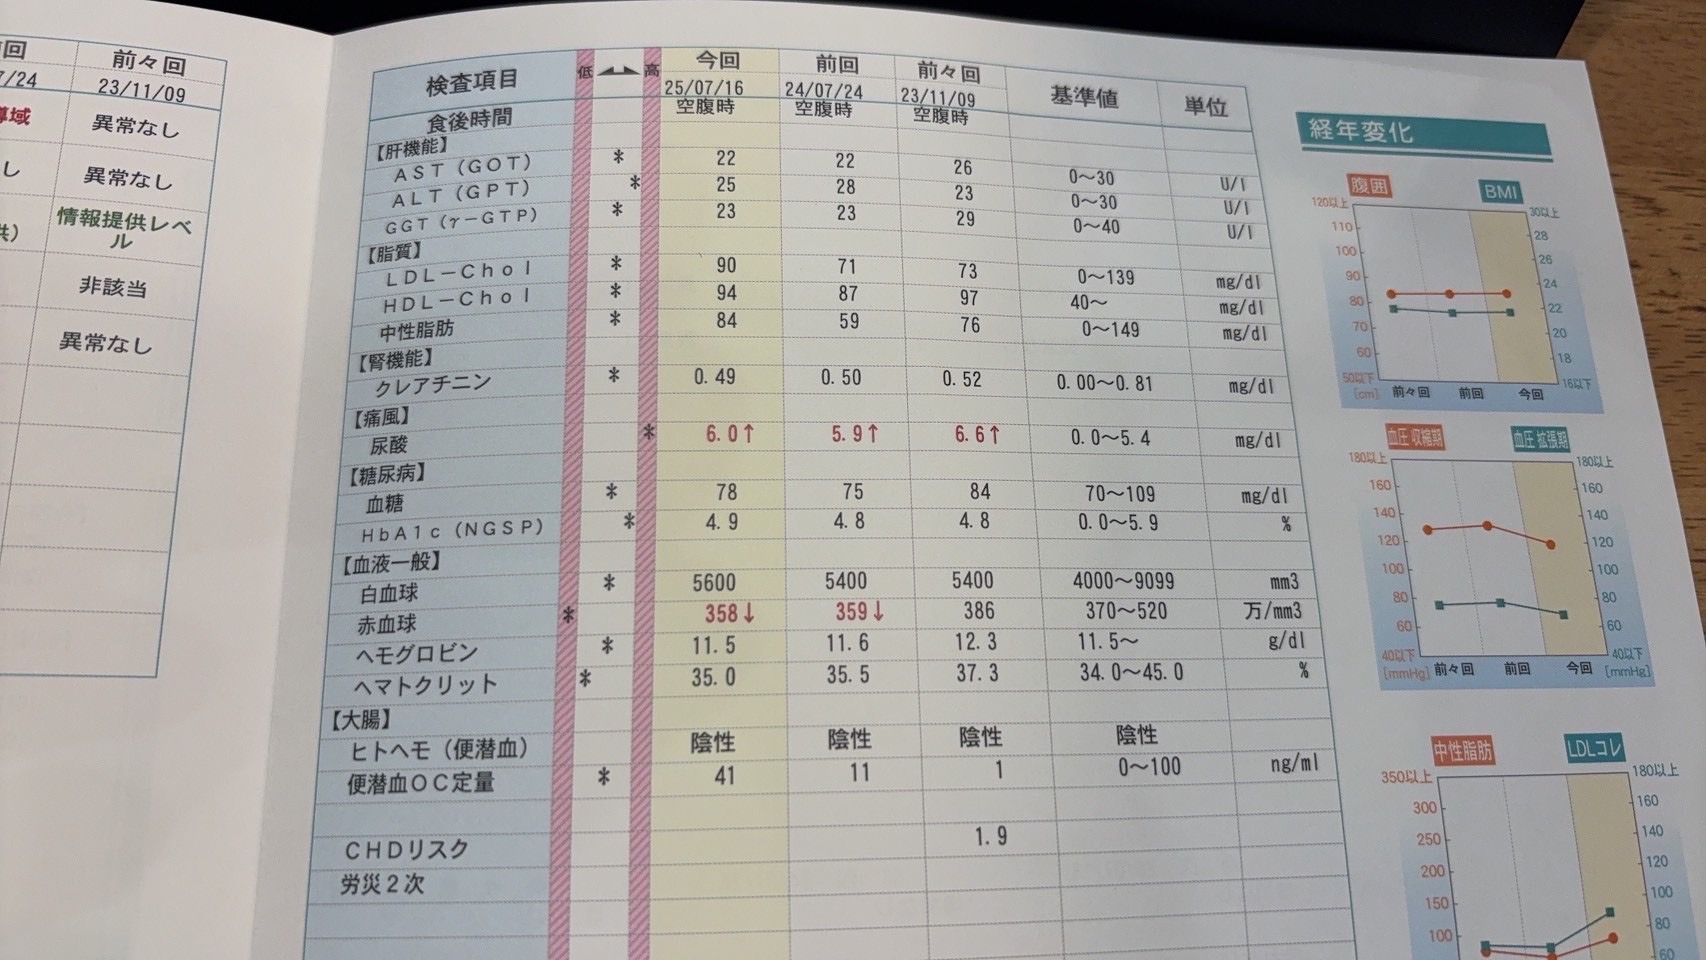 前々回
7/24 23/11/09
異常なし
異常なし
情報提供レベ
ル
非該当
異常なし
検査項目 低 高 今回 前回 前々回 基準値 単位
25/07/16 24/07/24 23/11/09
食後時間 空腹時 空腹時 空腹時
【肝機能】
AST(GOT) * 22 22 26 0〜30 U/l
ALT(GPT) * 25 28 23 0〜30 U/l
GGT(γ−GTP) * 23 23 29 0〜40 U/l
【脂質】
LDL−Chol * 90 71 73 0〜139 mg/dl
HDL−Chol * 94 87 97 40〜 mg/dl
中性脂肪 * 84 59 76 0〜149 mg/dl
【腎機能】
クレアチニン * 0.49 0.50 0.52 0.00〜0.81 mg/dl
【痛風】
尿酸 * 6.0↑ 5.9↑ 6.6↑ 0.0〜5.4 mg/dl
【糖尿病】
血糖 * 78 75 84 70〜109 mg/dl
HbA1c(NGSP) * 4.9 4.8 4.8 0.0〜5.9 %
【血液一般】
白血球 * 5600 5400 5400 4000〜9099 mm3
赤血球 * 358↓ 359↓ 386 370〜520 万/mm3
ヘモグロビン * 11.5 11.6 12.3 11.5〜 g/dl
ヘマトクリット * 35.0 35.5 37.3 34.0〜45.0 %
【大腸】
ヒトヘモ(便潜血) 陰性 陰性 陰性 陰性
便潜血OC定量 * 41 11 1 0〜100 ng/ml
CHDリスク 1.9
労災2次
経年変化
腹囲 BMI
120以上 30以上
110 28
100 26
90 24
80 22
70 20
60 18
50以下 16以下
[cm] 前々回 前回 今回
血圧 収縮期 血圧 拡張期
180以上 180以上
160 160
140 140
120 120
100 100
80 80
60 60
40以下 40以下
[mmHg] 前々回 前回 今回 [mmHg]
中性脂肪 LDLコレ
350以上 180以上
300 160
250 140
200 120
150 100
100 80
60